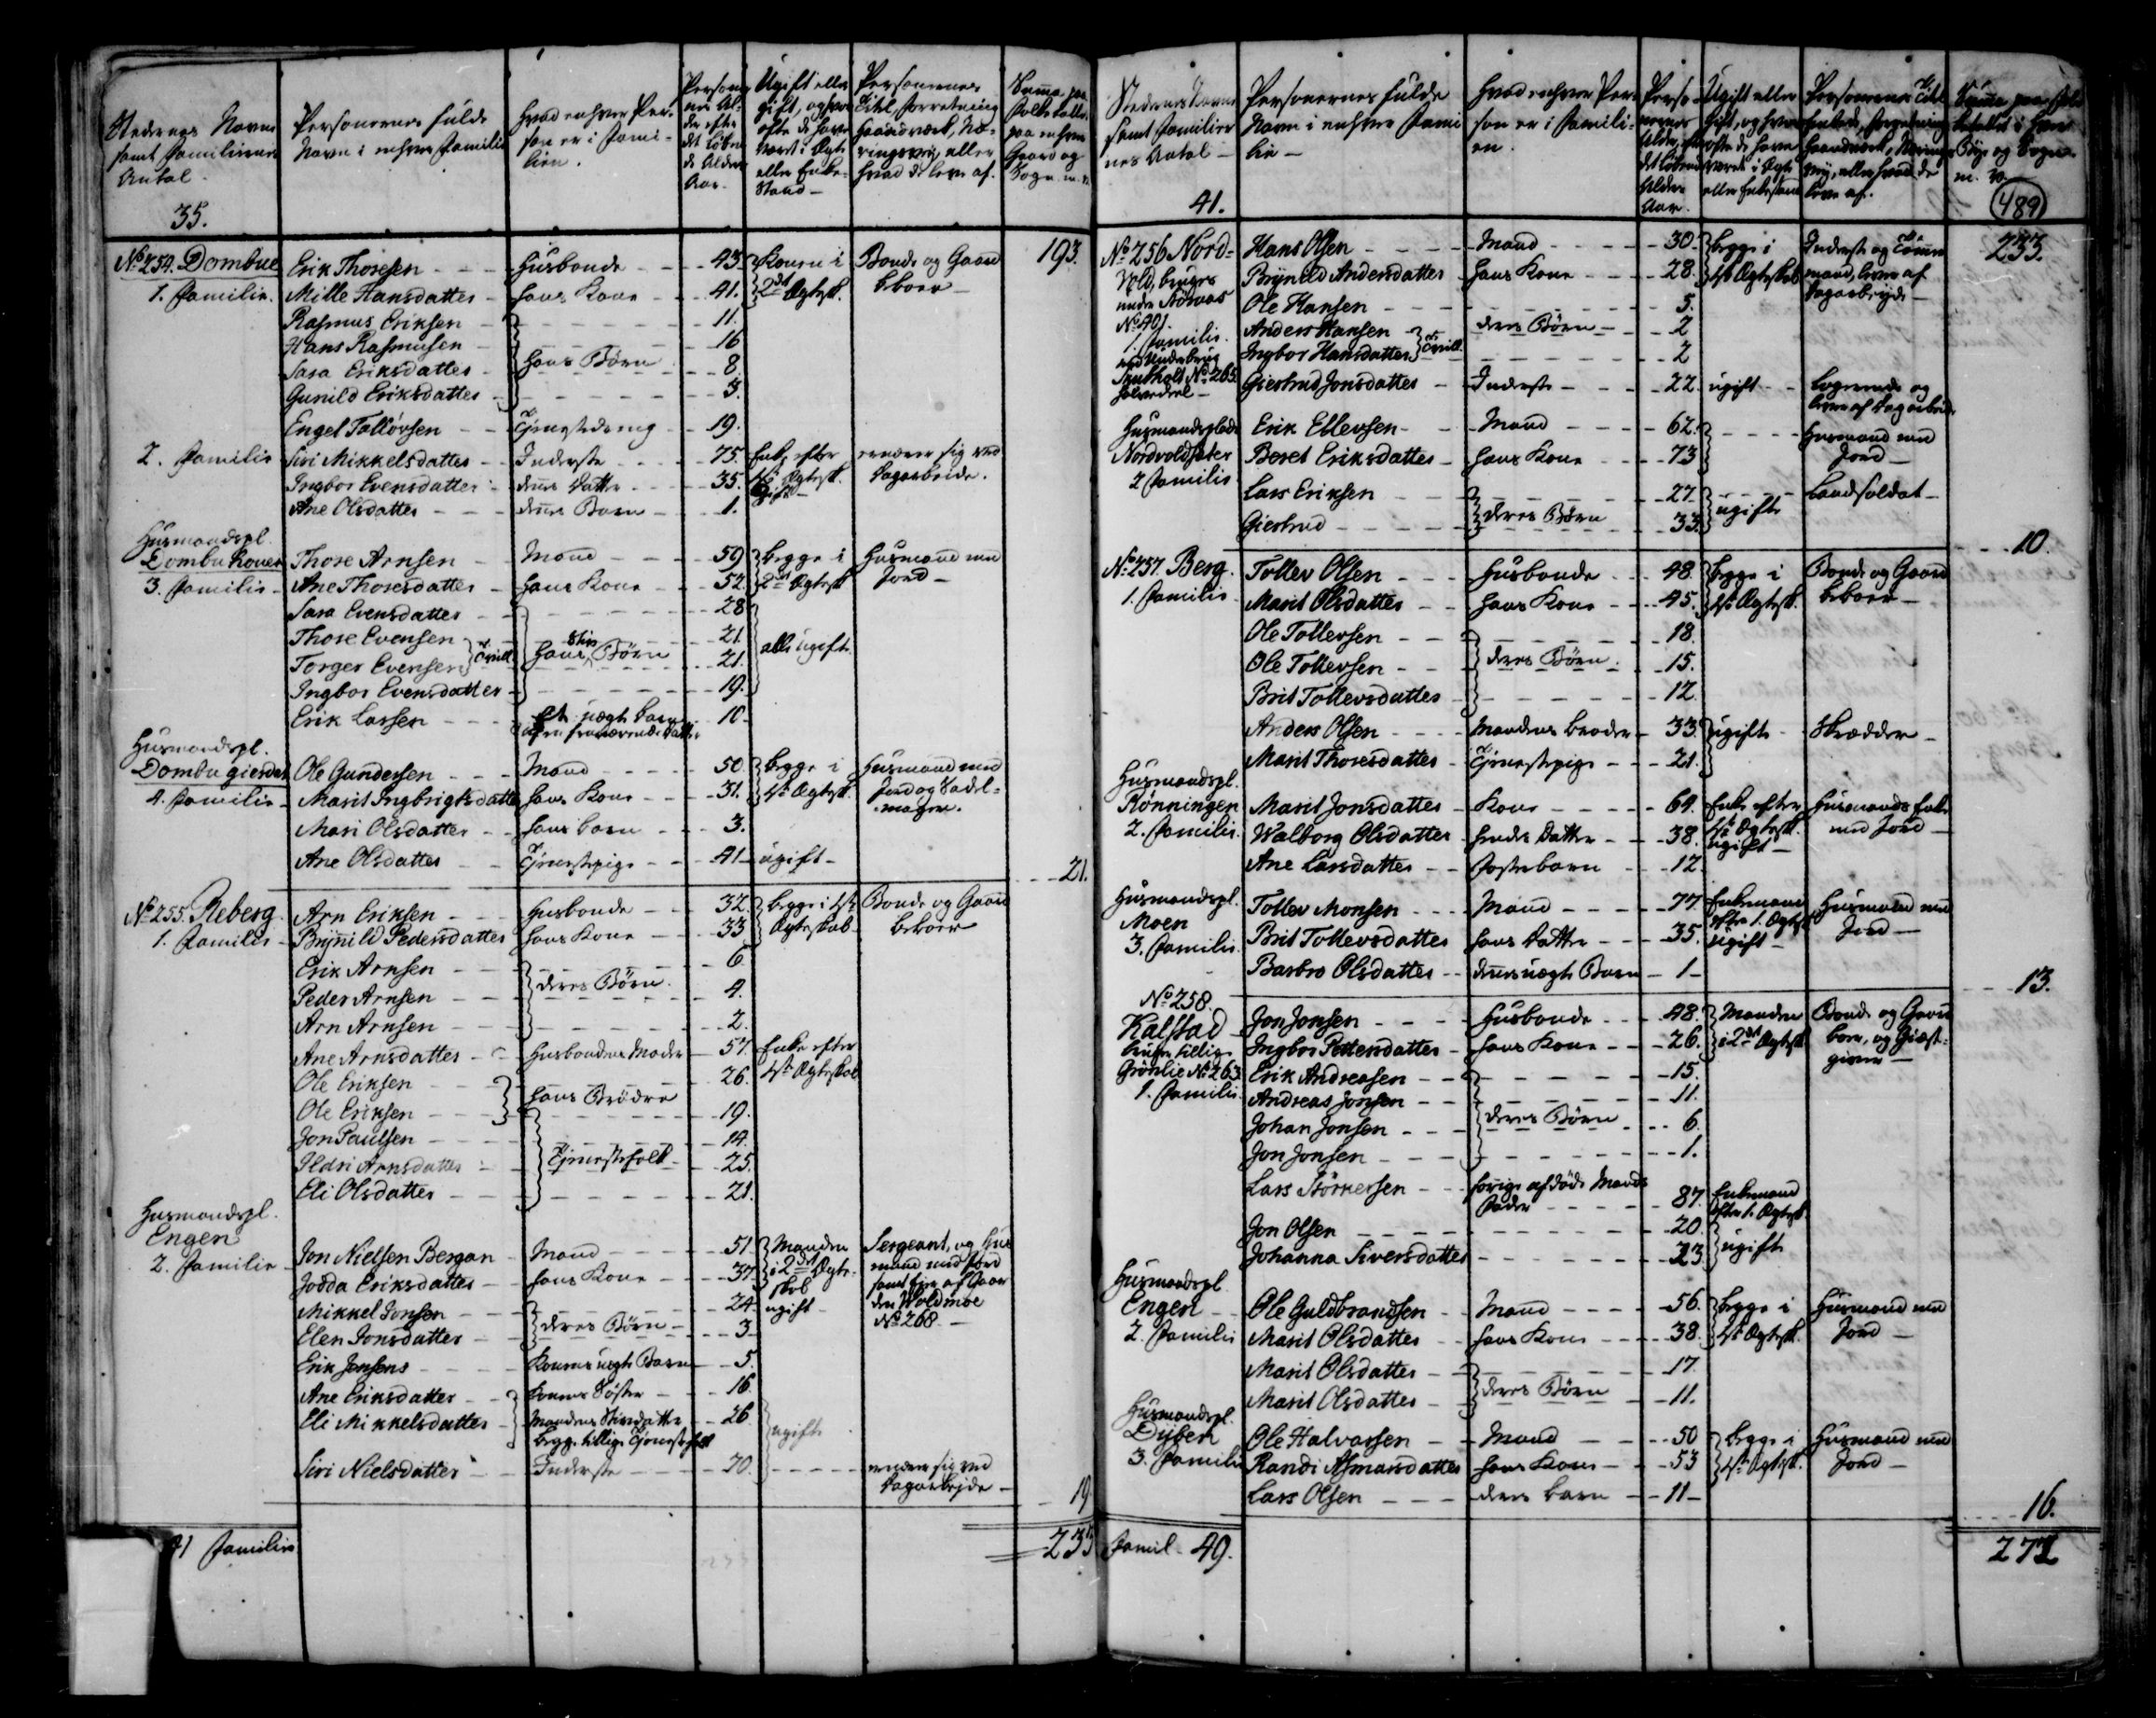 Stedernes Navne samt Familiernes Antal.
Personernes fulde Navn i enhver Familie
Hvad enhver Person er i Familien.
Personernes Alder efter det løbende Alders Aar.
Ugift eller gift, og hvor ofte de have været i Ægte eller Enkestand —
Personernes Titel, Forretning, Haandværk, Næringsvej eller hvad de leve af.
Summa paa Folketallet paa enhver Gaard og Sogn m. v.
35.
193.
No 254. Dombue
1. Familie.
Erik Thoresen — Husbonde — 43. Konen i 2det Ægtsk. Bonde og Gaard beboer —
Mille Hansdatter — hans Kone — 41.
Rasmus Eriksen — 11.
Hans Rasmusen — 16
Sara Eriksdatter — hans Børn — 8.
Gunild Eriksdatter — 3.
Engel Tolløvsen — Tjenestedreng — 19.
2. Familie Siri Mikkelsdatter — Inderste — 75. Enke efter 1ste Ægtesk. ernærer sig ved Dagarbeide.
Ingbor Evensdatter — dennes Datter — 35. ugift —
Ane Olsdatter — dennes Barn — 1.
Husmandspl.
Dombu Rouen
3. Familie —
Thore Arnsen — Mand — 59 begge i 2det Ægtesk Husmand med Jord —
Ane Thoresdatter — hans Kone — 52.
Sara Evensdatter — 28
Thore Evensen } Tvill. hans Stiv Børn — 21. alle ugift.
Torger Evensen — 21.
Ingbor Evensdatter — 19.
Erik Larsen — Et uægte barn af en fraværende Datter — 10
Husmandspl.
Dombu gierdet
4. Familie —
Ole Gundersen — Mand — 50. begge i 1ste Ægtesk. Husmand med Jord og Sadelmager.
Marit Ingbrigtsdatter hans Kone — 31.
Mari Olsdatter — hans barn — 3.
Ane Olsdatter — Tjenestepige — 41 — ugift —
21.
No 255. Reberg.
1. Familie —
Arn Eriksen — Husbonde — 32. begge i 1ste Ægteskab — Bonde og Gaard beboer
Brynild Pedersdatter hans Kone — 33
Erik Arnsen — 6
Peder Arnsen — deres Børn. — 4.
Arn Arnsen — 2.
Ane Arnsdatter — Husbondens Moder — 57. Enke efter 1ste Ægteskab
Ole Eriksen — hans Brødre — 26.
Ole Eriksen — 19.
Jon Paulsen — 14.
Ildri Arnsdatter — Tjenestefolk — 25.
Eli Olsdatter — 21.
Husmandspl.
Engen
2. Familie —
Jon Nielsen Bergan — Mand — 51 Manden i 2det Ægteskab Sergeant, og Husmand med Jord samt Eier af Gaarden Woldmoe No 268 —
Jodda Eriksdatter — hans Kone — 37
Mikkel Jonsen — deres Børn — 24. ugift —
Elen Jonsdatter — 3
Erik Jensens — Konens uægte Barn — 5.
Ane Eriksdatter — konens Søster — 16.
Eli Mikkelsdatter — Mandens Stivdatter — 26 ugift
begge tillige Tjenestefolk
Siri Nielsdatter — Inderste — 70. ernærer sig ved Dagarbejde —
19
41 Familier 235
Stedernes Navne samt Familiernes Antal —
Personernes fulde Navn i enhver Familie —
Hvad enhver Person er i Familien.
Personernes Alder, efter det løbende Alders Aar.
Ugift eller Gift, og hvor ofte de have været i Ægte eller Enkestand
Personernes Titel, Forretning, Haandværk, Nærings vej, eller hvad de leve af.
m. v.
41.
489
233.
No 256 Nord-
Wold, bruges under Aûnaas No 401.
1. Familie.
No 265
Hans Olsen — Mand — 30. begge i 1ste Ægteskab Inderste og Tømmermand, lever af Dagarbejde —
Brynild Andersdatter hans Kone — 28.
Ole Hansen — 5.
Anders Hansen — } Tvill. deres Børn — 2
Ingbor Hansdatter — 2
Giertrud Jonsdatter — Inderste — 22. ugift — logerende og lever af Dagarbeide
Husmandsplads
Nordvoldsæter
2 Familie
Erik Ellevsen — Mand — 62. Husmand med Jord —
Beret Eriksdatter — hans Kone — 73
Lars Eriksen — deres Børn — 27. ugifte Landsoldat —
Giertrud — 33.
10.
No 257. Berg.
1. Familie —
Tollev Olsen — Husbonde — 48. begge i 1ste Ægtesk. Bonde og Gaard beboer —
Marit Olsdatter — hans Kone — 45.
Ole Tollevsen — 18.
Ole Tollevsen — deres Børn. — 15.
Brit Tollevsdatter — 12.
Anders Olsen — Mandens broder — 33. ugifte — Skrædder —
Marit Thoresdatter — Tjenestepige — 21.
Husmandspl.
Rønningen
2. Familie.
Marit Jonsdatter — Kone — 64. Enke efter 1ste Ægtesk. Husmands Enke med Jord —
Walborg Olsdatter — hendes Datter — 38. ugift —
Ane Larsdatter — Fosterbarn — 12.
Husmandspl.
Moen
3. Familie.
Tollev Monsen — Mand — 77 Enkemand efter 1. Ægtesk Husmand med Jord —
Brit Tollevsdatter hans Datter — 35. ugift —
Barbro Olsdatter — dennes uægte Barn — 1 —
13.
No 258.
Kalstad
bruger tillige
Grønlie No 263
1. Familie.
Jon Jonsen — Husbonde — 48. Manden i 2det Ægtesk Bonde og Gaardboer, og Giæstgiver —
Ingbor Pettersdatter — hans Kone — 26.
Erik Andreasen — 15.
Andreas Jonsen — 11.
Johan Jonsen — deres Børn — 6.
Jon Jonsen — 1.
Lars Størkersen — forrige afdøde Mands Fader — 87. Enkemand efter 1. Ægtesk.
Jon Olsen — 20. ugifte
Johanna Siversdatter — 23
Husmandspl
Engen —
2. Familie
Ole Guldbrandsen — Mand — 56. begge i 1ste Ægtesk. Husmand med Jord —
Marit Olsdatter — hans Kone — 38.
Marit Olsdatter — 17
Marit Olsdatter — deres Børn — 11.
Husmandspl.
Dyben
3. Familie
Ole Halvorsen — Mand — 50 begge i 1ste Ægtesk. Husmand med Jord —
Randi Asmarsdatter hans Kone — 53
Lars Olsen — deres barn — 11 —
16.
Famil — 49. 272